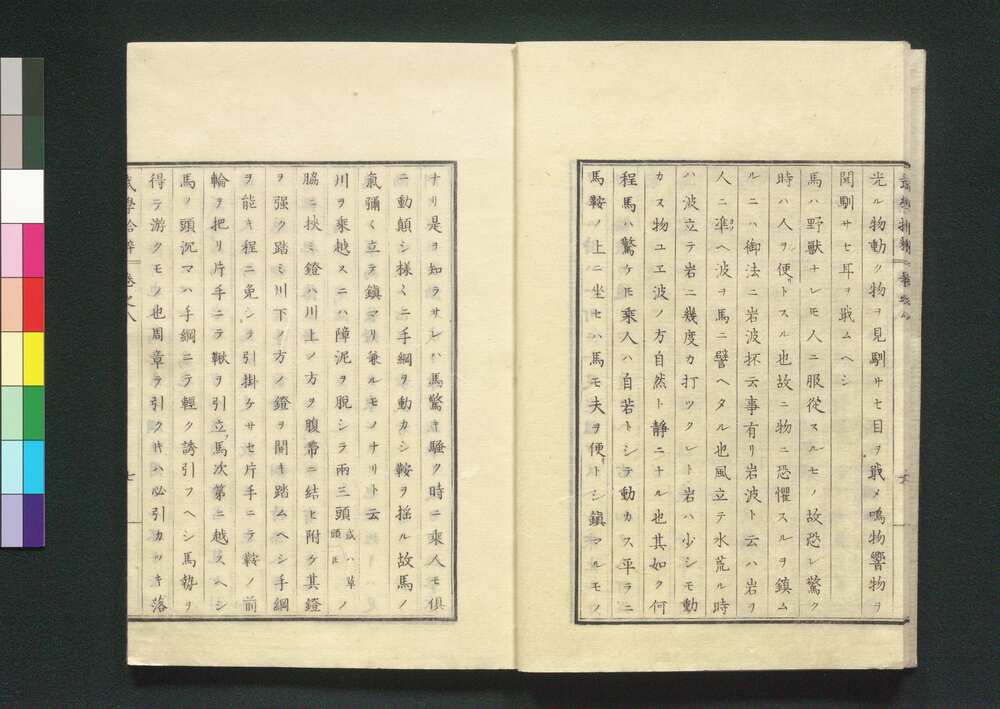 光ル物動ク物ヲ見馴サセ目ヲ戢メ鳴物響物ヲ
聞馴サセ耳ヲ戢ムヘシ
馬ハ野獣ナレ𪜈人ニ服從スルモノ故恐レ驚ク
時ハ人ヲ便トスル也故ニ物ニ恐懼スルヲ鎮ム
ルニハ御法ニ岩波抔云事有リ岩波ト云ハ岩ヲ
人ニ準ヘ波ヲ馬ニ譬ヘタル也風立テ水荒ル時
ハ波立テ岩ニ幾度カ打ツクレト岩ハ少シモ動
カス物ユエ波ノ方自然ト静ニナル也其如ク何
程馬ハ驚ケ𪜈乘人ハ自若トシテ動カス平ラニ
馬鞍ノ上ニ坐セハ馬モ夫ヲ便トシ鎮マルモノ
ナリ是ヲ知ラサレハ馬驚キ騒ク時ニ乘人モ俱
ニ動顛シ様〱ニ手綱ヲ動カシ鞍ヲ揺ル故馬ノ
氣彌〱立テ鎮マリ兼ルモノナリト云
川ヲ乘越スニハ障泥ヲ脱シテ兩三頭或ハ草頭正ノ
脇ニ挾ミ鐙ハ川上ノ方ヲ腹帯ニ結ヒ附ケ其鐙
ヲ强ク踏ミ川下ノ方ノ鐙ヲ開キ踏ムヘシ手綱
ヲ能キ程ニ免シヲ引掛ケサセ片手ニテ鞍ノ前
輪ヲ把リ片手ニテ鞦ヲ引立馬次第ニ越スヘシ
馬ノ頭沉マハ手綱ニテ輕ク誘引フヘシ馬勢ヲ
得テ游クモノ也周章テ引ク𪜈ハ必引カツキ落
卷之八
七